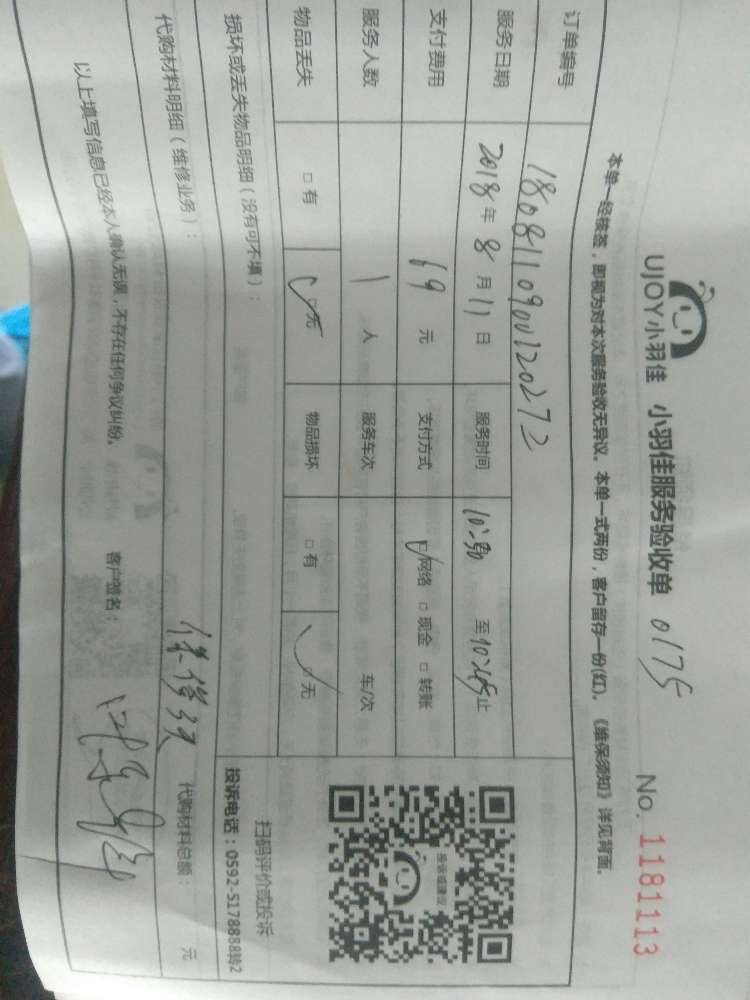 UJOY小羽佳 小羽佳服务验收单 0175 No. 1181113
本单一经核签，即视为对本次服务验收无异议。本单一式两份，客户留存一份(红)。《维保须知》详见背面。
订单编号 180811090120272
服务日期 2018年8月11日 服务时间 至 止
支付费用 69元 支付方式 ☑网络 □现金 □转账
服务人数 1人 服务车次 车/次
物品丢失 □有 ☑无 物品损坏 □有 ☑无
投诉或建议
扫码评价或投诉
投诉电话：0592-5178888转2
损坏或丢失物品明细（没有可不填）：
代购材料明细（维修业务）： 代购材料总额： 元
以上填写信息已经本人确认无误，不存在任何争议纠纷。 客户签名：